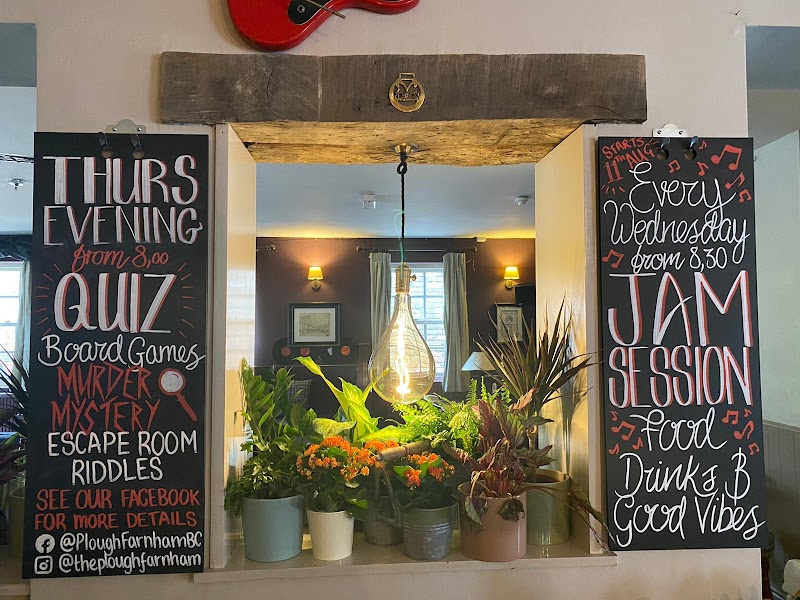 THURS
EVENING
from 8,00
QUIZ
Board Games
MURDER
MYSTERY
ESCAPE ROOM
RIDDLES
SEE OUR FACEBOOK
FOR MORE DETAILS
@PloughFarnhamBC
@theploughfarnham
STARTS
11TH AUG
Every
Wednesday
from 8,30
JAM
SESSION
Food
Drinks &
Good Vibes